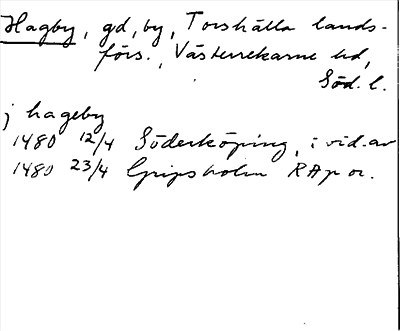 Hagby, gd, by, Torshälla lands-
förs., Västerrekarne hd,
Söd. l.
j hageby
1480 12/4 Söderköping, i vid. av
1480 23/4 Gripsholm RAp or.